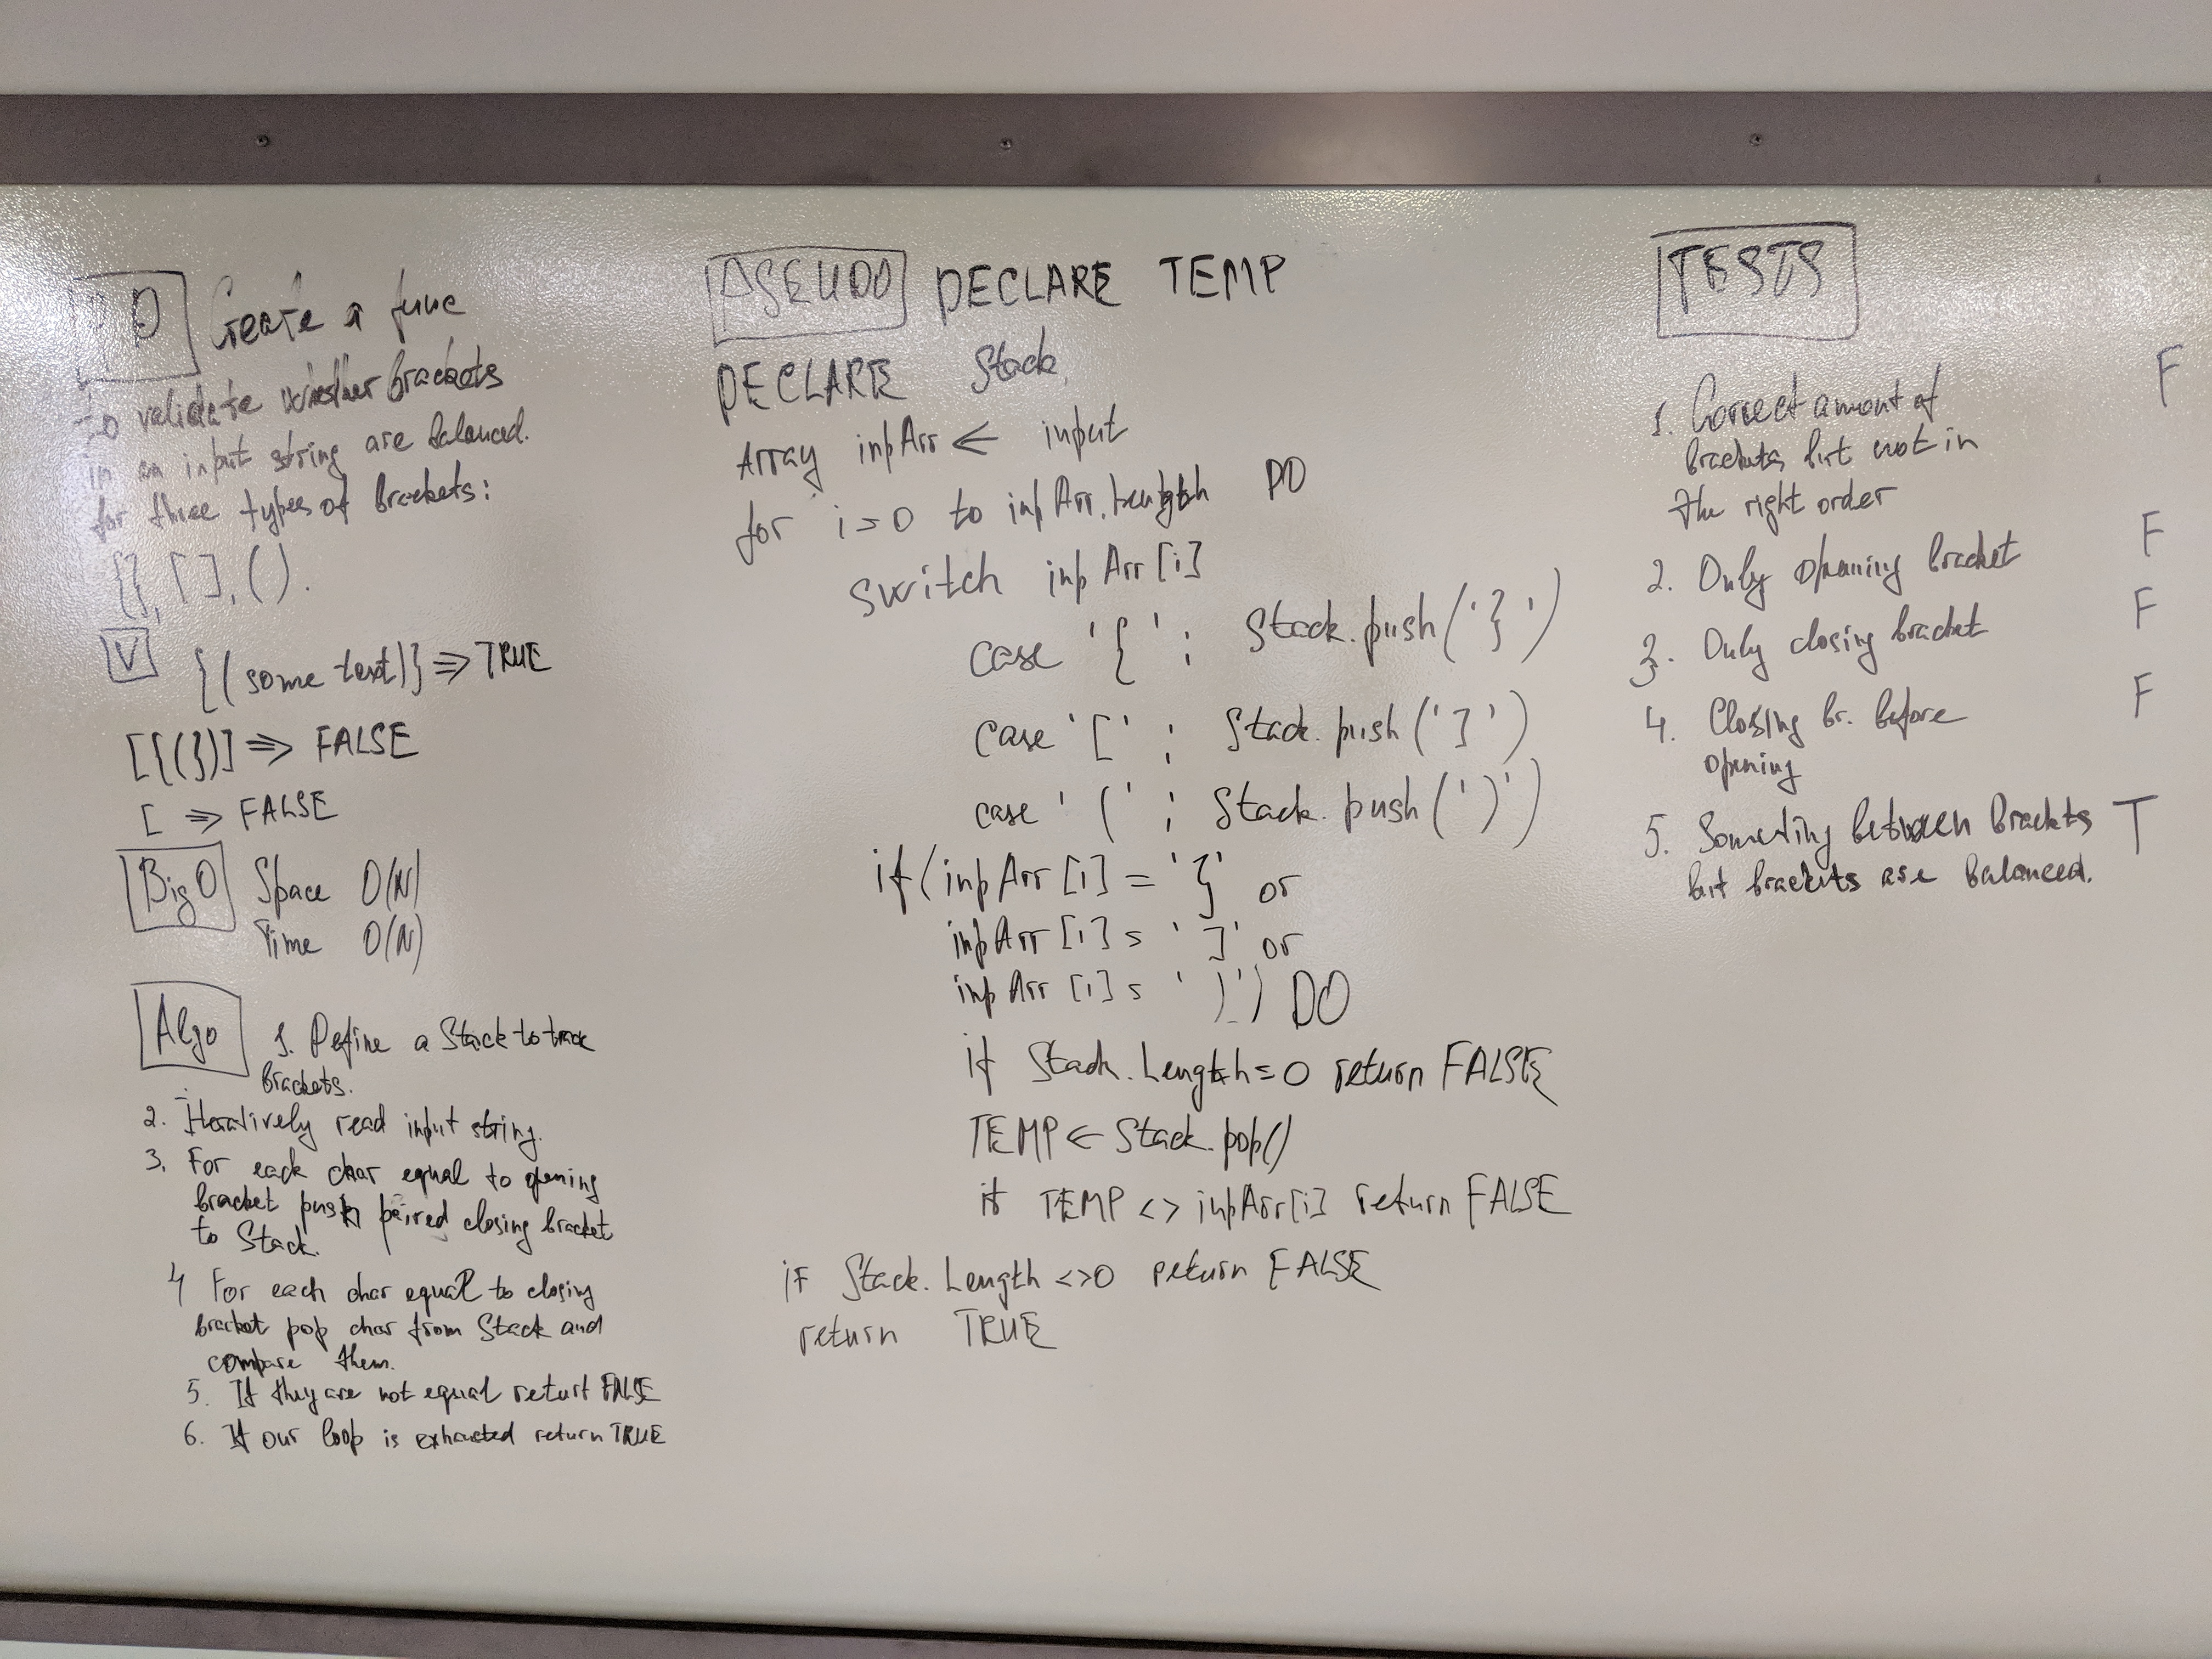 PD Create a func
to validate whether brackets
in an input string are balanced.
for three types of brackets:
{}, [], ().
V {(some text)} => TRUE
[{(})] => FALSE
[ => FALSE
Big O Space O(N)
Time O(N)
Algo 1. Define a Stack to track
brackets.
2. Iteratively read input string.
3. For each char equal to opening
bracket push paired closing bracket
to Stack.
4 For each char equal to closing
bracket pop char from Stack and
compare them.
5. If they are not equal return FALSE
6. If our loop is exhausted return TRUE
PSEUDO DECLARE TEMP
DECLARE Stack
Array inpArr <- input
for i=0 to inpArr.Length DO
switch inpArr[i]
case '{' : Stack.push('}')
case '[' : Stack.push(']')
case '(' : Stack.push(')')
if (inpArr[i] = '}' or
inpArr[i] = ']' or
inpArr[i] = ')') DO
if Stack.Length = 0 return FALSE
TEMP <- Stack.pop()
if TEMP <> inpArr[i] return FALSE
if Stack.Length <> 0 return FALSE
return TRUE
TESTS
1. Correct amount of F
brackets but not in
the right order
2. Only opening bracket F
3. Only closing bracket F
4. Closing br. before F
opening
5. Something between brackets T
but brackets are balanced.